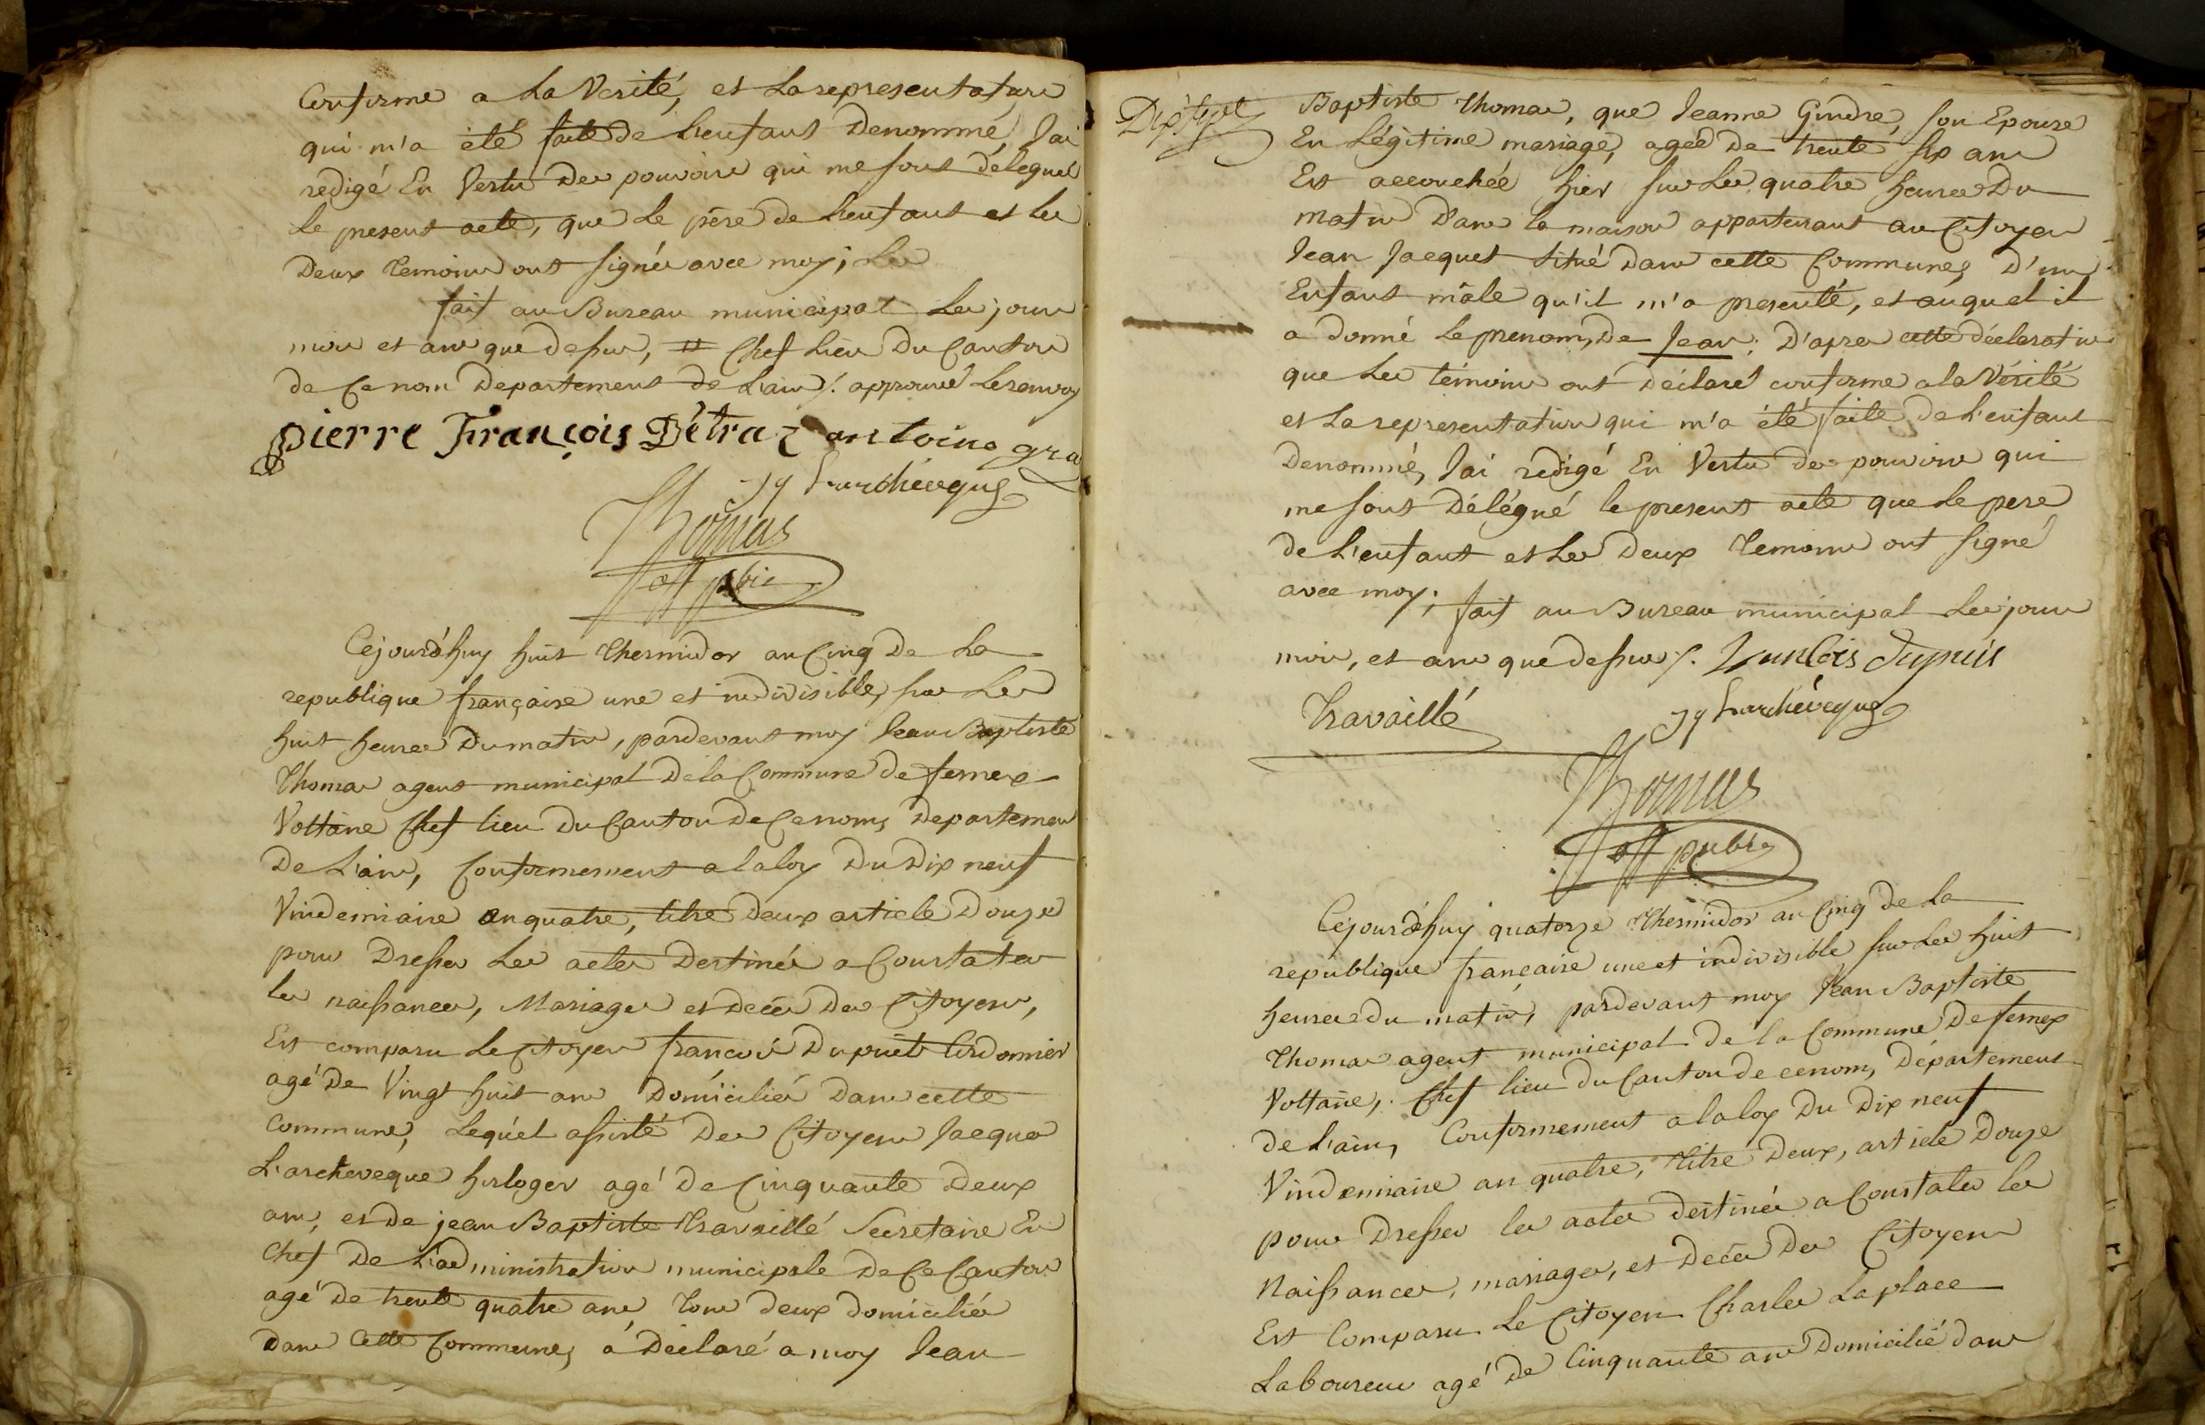 Conforme a La Vérité, et La representation
qui m'a été faite de L'enfant Denommé, J'ai
redigé En Vertu Des pouvoirs qui me sont délegués
Le present acte, que Le père de L'enfant et les
Deux temoins ont signés avec moy; Les
fait au Bureau municipal Les jours
mois et ans que dessus, # Chef Lieu Du Canton
de Ce nom Departement de L'ain ./. approuvé Le renvoy
pierre François Détraz antoine gra
J q Larchéveque
Thomas
off pbic
Cejourd'huy huit Thermidor an Cinq De La
republique française une et indivisible, sur Les
huit heures Du matin, pardevant moy Jean Baptiste
Thomas agent municipal De la Commune de fernex
Voltaire Chef lieu Du Canton De Ce nom, Departemen
De L'ain, Conformement a la loy Du Dix neuf
Vindemiaire an quatre, titre Deux article Douze
pour Dresser Les actes Destinés a Constater
les naissances, Mariages et décès Des Citoyens,
Est comparu Le Citoyen francois Dupuit Cordonnier
agé De Vingt huit ans Domicilié Dans cette
Commune, Lequel assisté Des Citoyens Jacques
L'archeveque horloger agé De Cinquante Deux
ans, et de jean Baptiste Travaillé Secretaire En
Chef De L'administration municipale De Ce Canton
agé De trente quatre ans, tous deux domiciliés
Dans Cette Commune, a Déclaré a moy Jean
Baptiste Thomas, que Jeanne Gindre, son Epouse
En Légitime mariage, agée De trente six ans
Est accouchée hier sur Les quatre heures Du
matin Dans la maison appartenant au Citoyen
Jean Jacquet situé Dans cette Commune, D'un
Enfant mâle qu'il m'a presenté, et auquel il
a donné Le prenom, De Jean; D'apres cette déclaration
que Les témoins ont Déclaré conforme a la Vérité
et La representation qui m'a été faite De L'enfant
Denommé, J'ai redigé En Vertu des pouvoirs qui
me sont Délégué le present acte que Le pere
de L'enfant et Les Deux temoins ont signé
avec moy; fait au Bureau municipal Les jours
mois, et ans que dessus ./. francois Dupuis
Travaillé
J q Larchéveque
Thomas
off public
Cejourd'huy quatorze Thermidor an Cinq de La
république française une et indivisible sur Les huit
heures du matin, pardevant moy Jean Baptiste
Thomas agent municipal de la Commune De fernex
Voltaire, Chef lieu Du Canton de ce nom, Département
de L'ain, Conformement a la loy Du Dix neuf
Vindemiaire an quatre, titre Deux, article Douze
pour Dresser les actes destinés a Constater les
Naissances, mariages, et Décès Des Citoyens
Est Comparu Le Citoyen Charles Laplace
Laboureur agé De Cinquante ans Domicilié dans